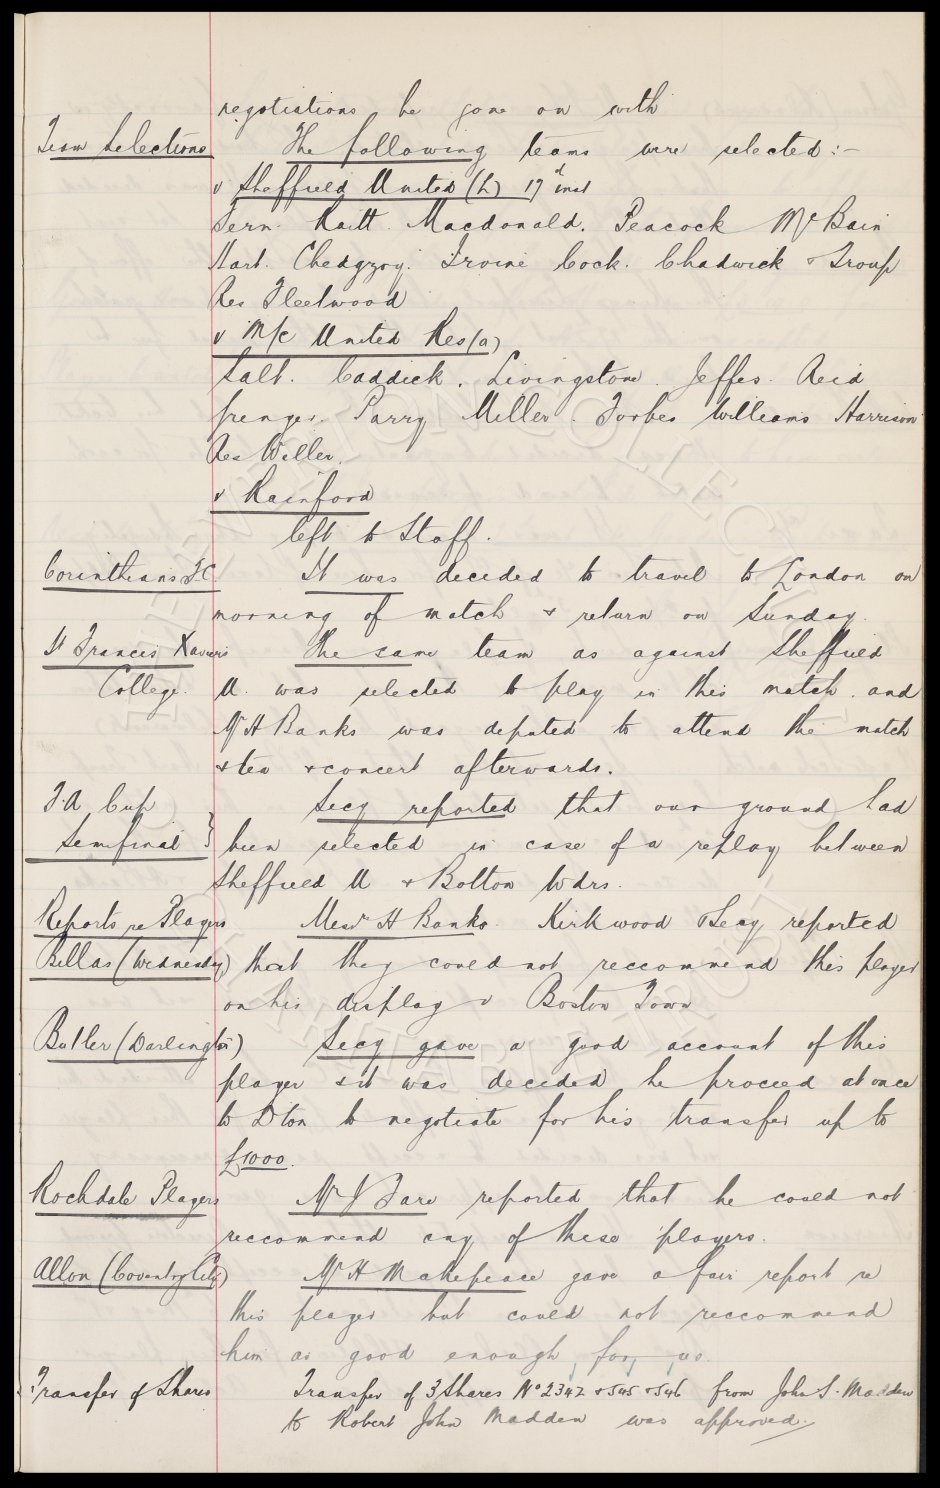 negotiations be gone on with
Team Selections The following teams were selected :-
v Sheffield United (h) 17th inst
Fern. Raitt. Macdonald. Peacock McBain
Hart. Chedgzoy. Irvine Cock. Chadwick & Troup
Res Fleetwood
v M/c United Res (a)
Salt. Caddick. Livingstone. Jeffes. Reid
Grenyer. Parry Miller. Forbes Williams Harrison
Res Weller.
v Rainford
left to Staff.
Corinthians F.C It was decided to travel to London on
morning of match & return on Sunday.
St Francis Xaviers The same team as against Sheffield
College. U. was selected to play in this match. and
Mr H Banks was deputed to attend the match
& tea & concert afterwards.
F.A. Cup Secy reported that our ground had
Semifinal } been selected in case of a replay between
Sheffield U & Bolton Wdrs.
Reports re Players Messrs H Banks. Kirkwood & Secy reported
Bellas (Wednesday) that they could not reccommend this player
on his display v Boston Town
Butler (Darlington) Secy gave a good account of this
player & it was decided he proceed at once
to D'ton to negotiate for his transfer up to
£1000.
Rochdale Players Mr J Fare reported that he could not
reccommend any of these players.
Allon (Coventry City) Mr H Makepeace gave a fair report re
this player but could not reccommend
him as good enough for us.
Transfer of Shares Transfer of 3 Shares No 2342 & 545 & 546 from John S. Madden
to Robert John Madden was approved.